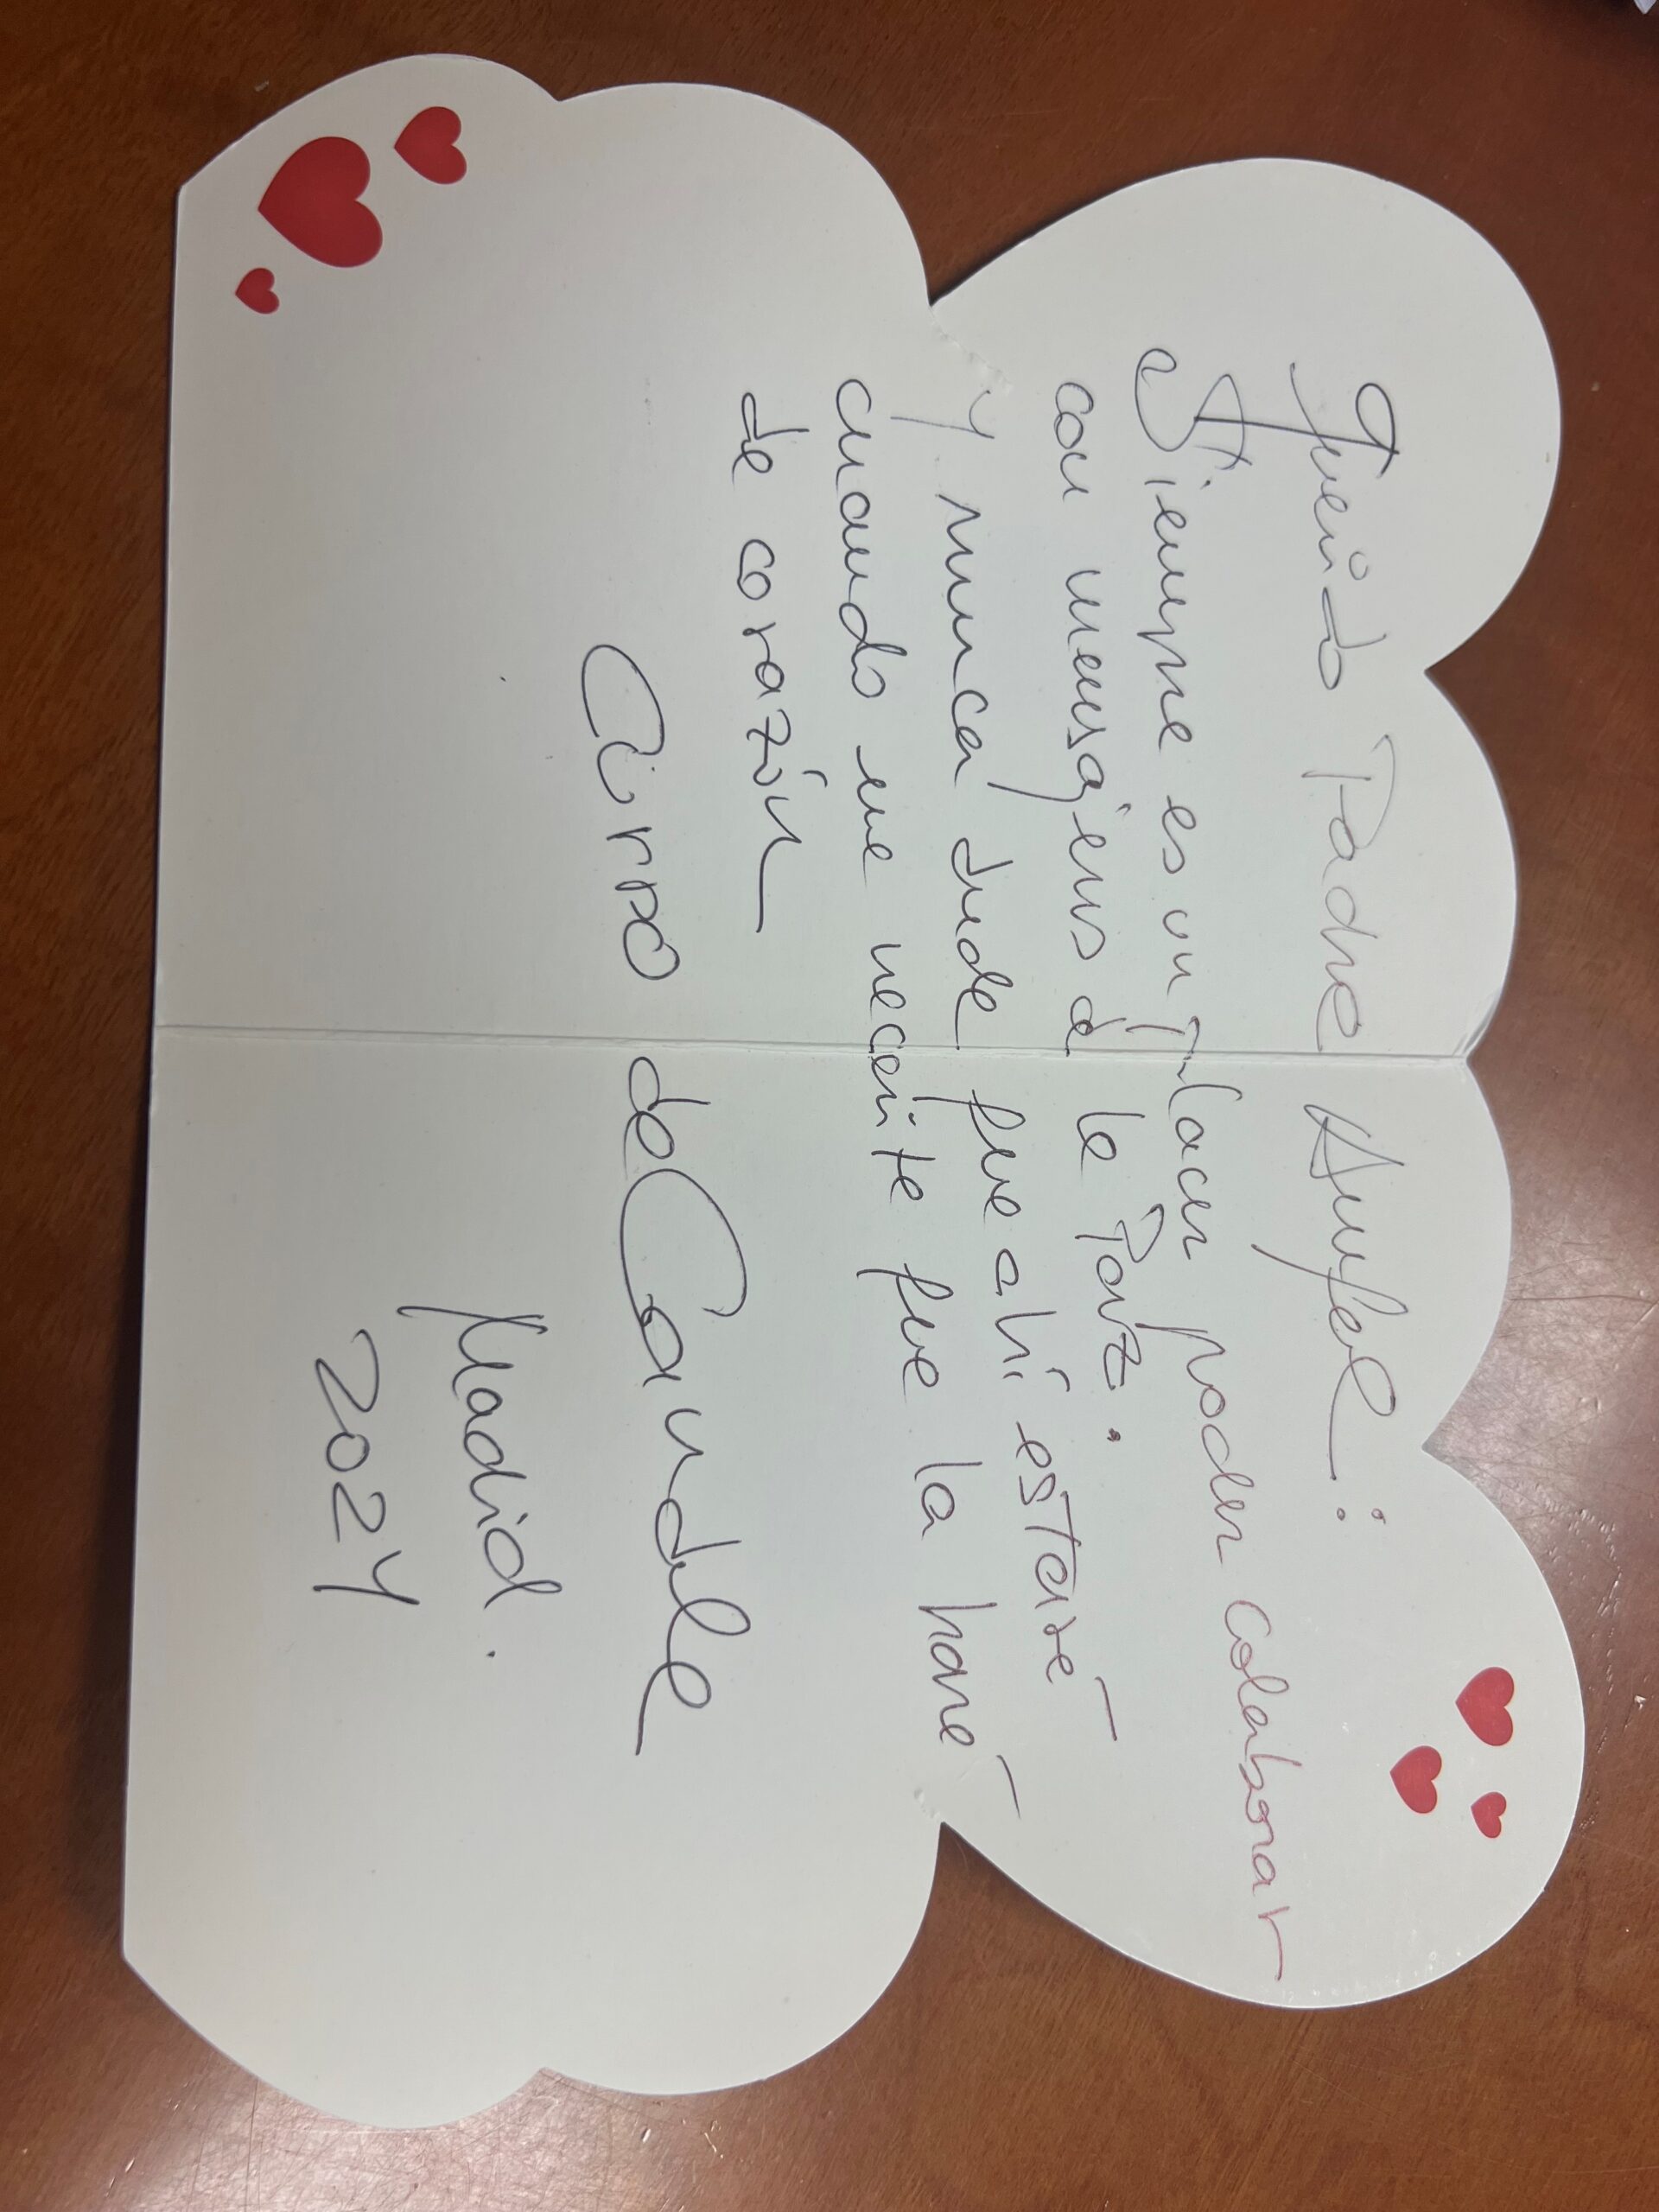 Querido Padre Angel:
Siempre es un placer poder colaborar
con mensajeros de la Paz.
Y nunca dude que ahí estaré
cuando me necesite que la haré
de corazón
Cirso de Candale
Madrid.
2024